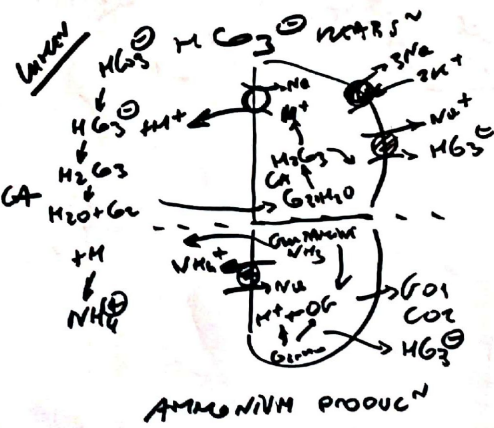 LUMEN
HCO3⊖ REABS~
HCO3⊖
HCO3⊖ + H+
H2CO3
CA
H2O + CO2
+ H
NH4⊕
Na
H+
H2CO3
CA
CO2 + H2O
3Na
2K+
Na+
HCO3⊖
GLUTAMINE
NH3
NH4+
Na
H+ + OG
GO1
CO2
HCO3⊖
AMMONIUM PRODUC~